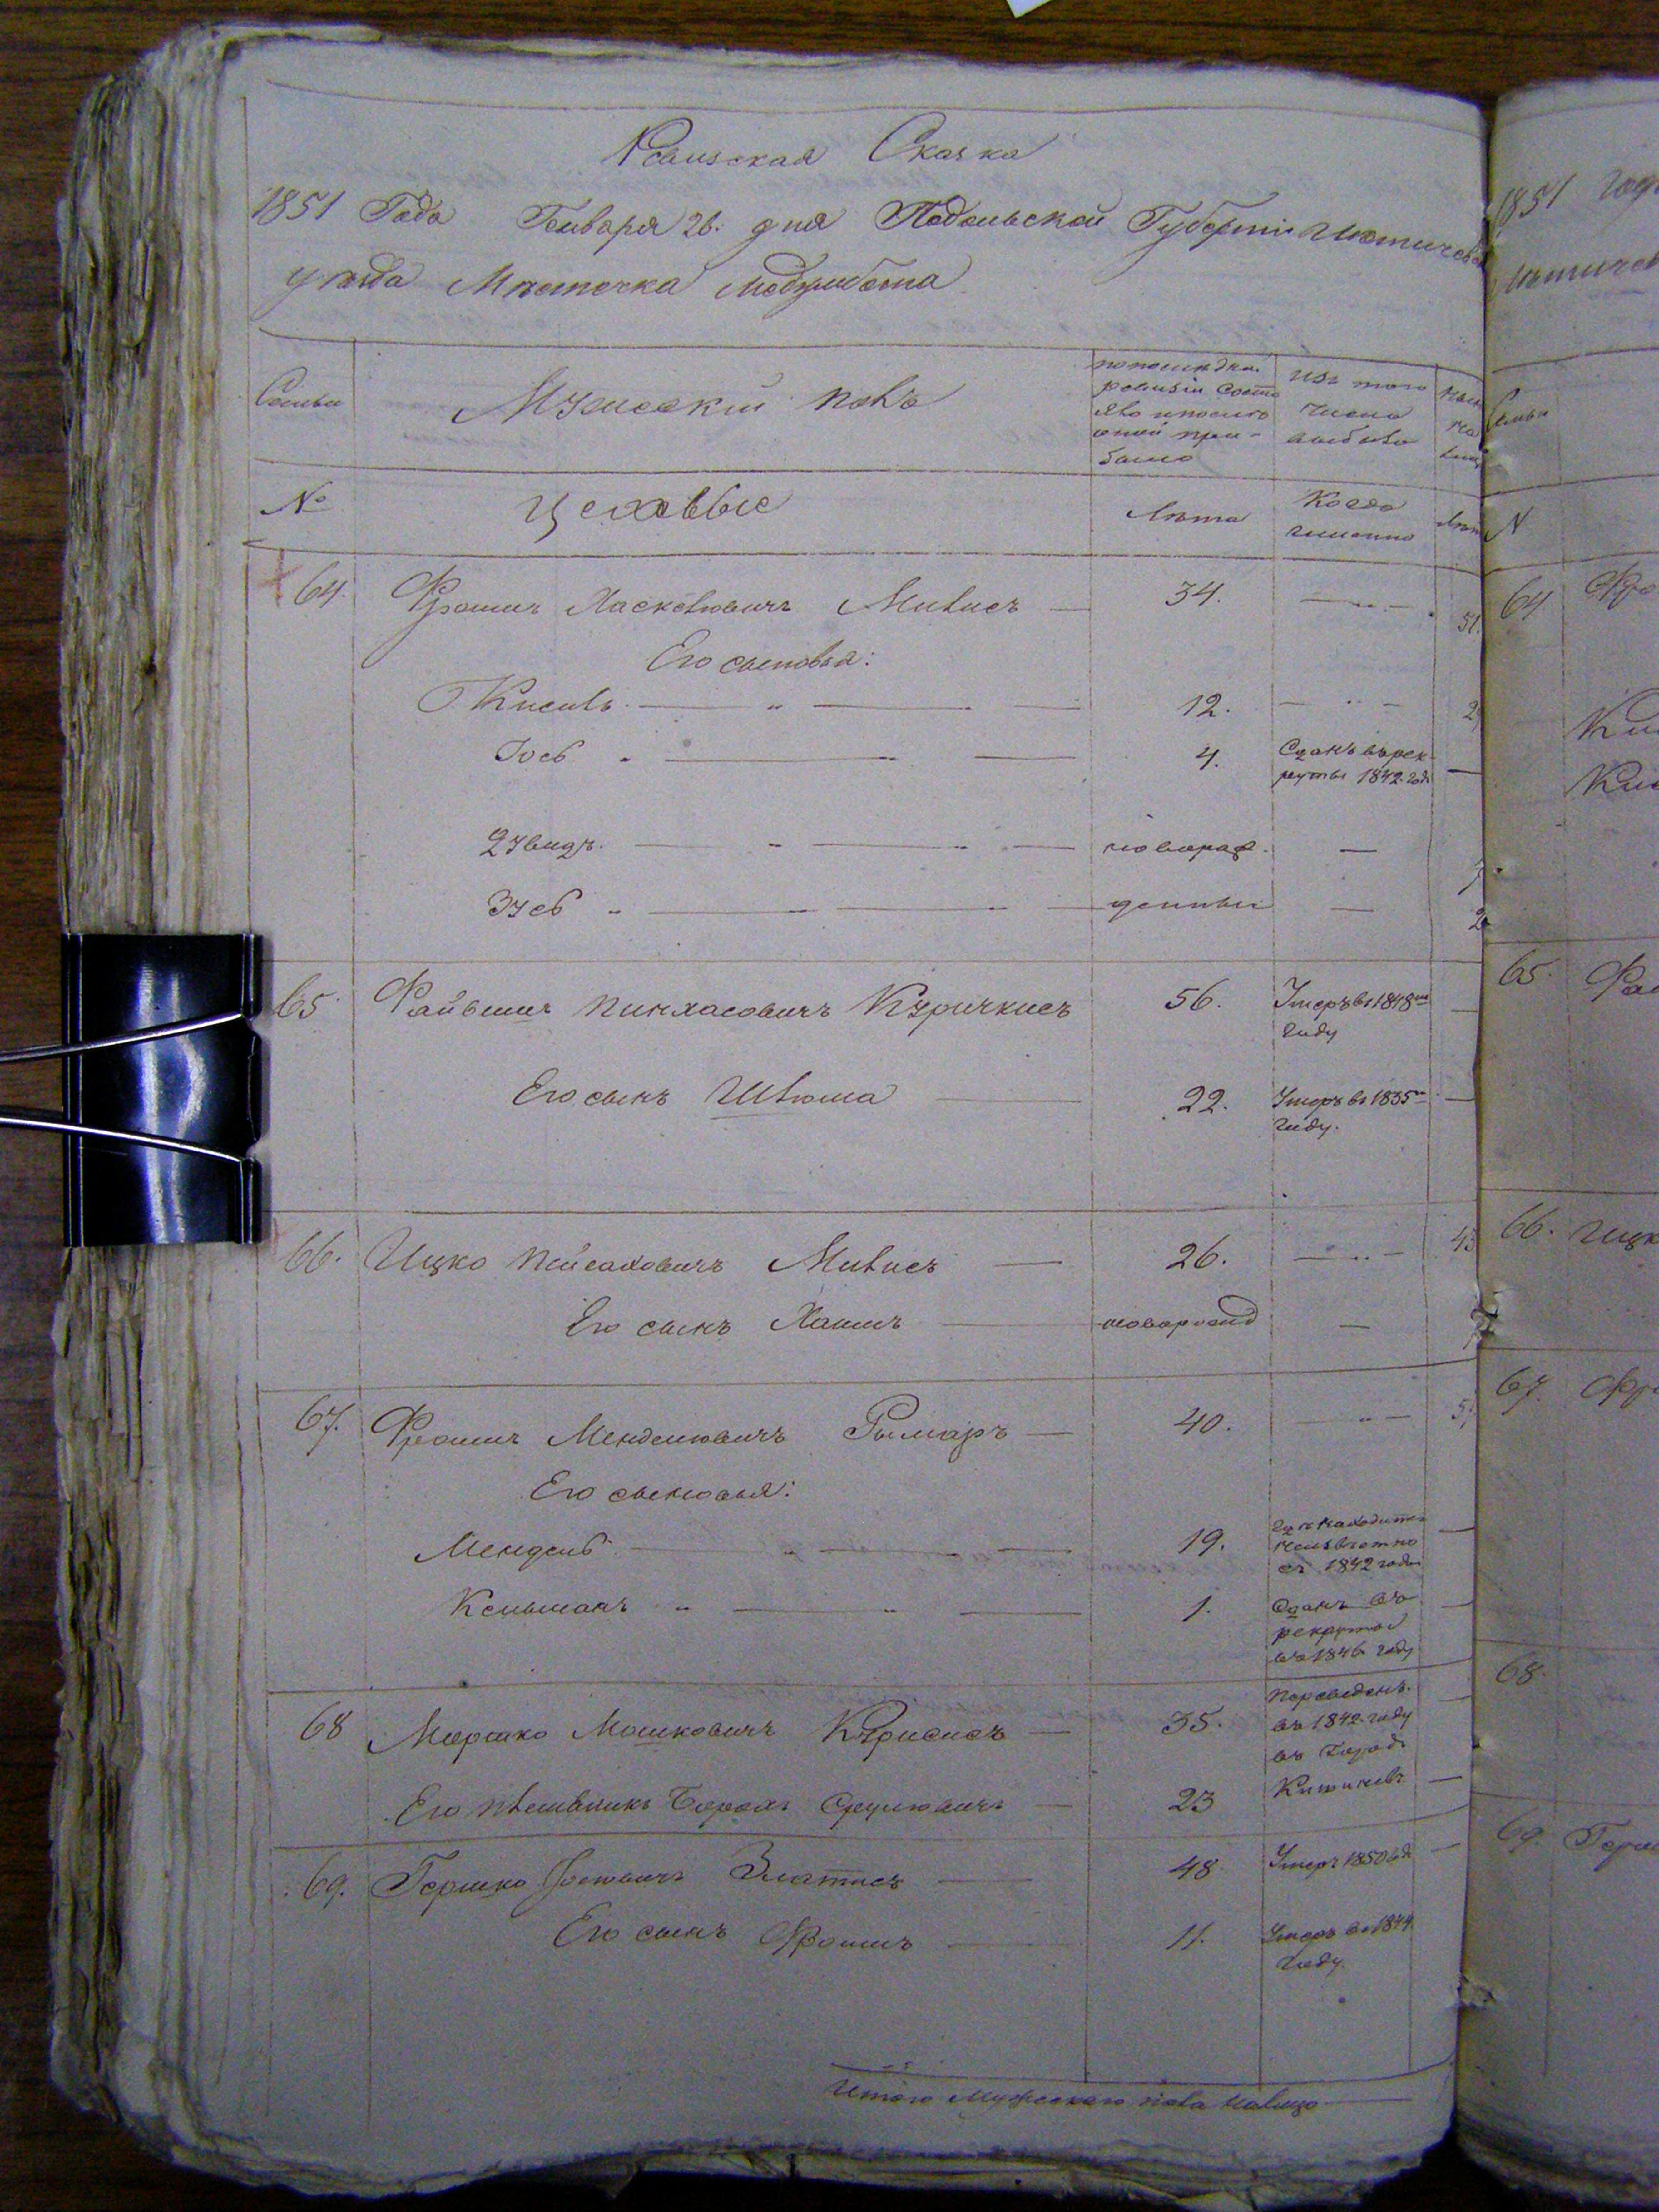 Ревизская Сказка
1851 Года Генваря 26. дня Подольской Губерніи Летичевс
уезда Местечка Меджибожа
Семьи
Мужескій полъ
по последн.
ревизіи состо
яло и после
оной при-
было
изъ того
числа
выбыло
№
Цеховые
Лета
Когда
именно
64.
Фроимъ Хаскелювичъ Мивисъ
34.
51.
Его сыновья:
Кисиль
12.
Іось
4.
Сданъ в рек-
руты 1842 год.
2 Увидъ
новорож-
3 Усь
денные
65
Файвишъ Пинхасовичъ Куричкисъ
56.
Умеръ въ 1848
году
Его сынъ Шлюма
22.
Умеръ въ 1835
году.
66.
Ицко Пейсаховичъ Мивисъ
26.
Его сынъ Хаимъ
новорожд
67.
Фроимъ Менделювичъ Рымаръ
40.
Его сыновья:
Мендель
19.
неизвестно
съ 1842 года
Кельманъ
1.
Сданъ въ
рекруты
въ 1846 году
68
Мошковичъ
35.
Переведенъ
въ 1842 году
въ Городъ
Его племянникъ Борохъ Срулювичъ
23
Кишиневъ
69.
Гершко Златисъ
48
Умеръ 1850 год
Его сынъ Фроимъ
11.
Умеръ въ 1844
году.
Итого Мужескаго пола налицо
1851 Года
64
65.
66. Ицк
67. Фр
68.
69. Герш